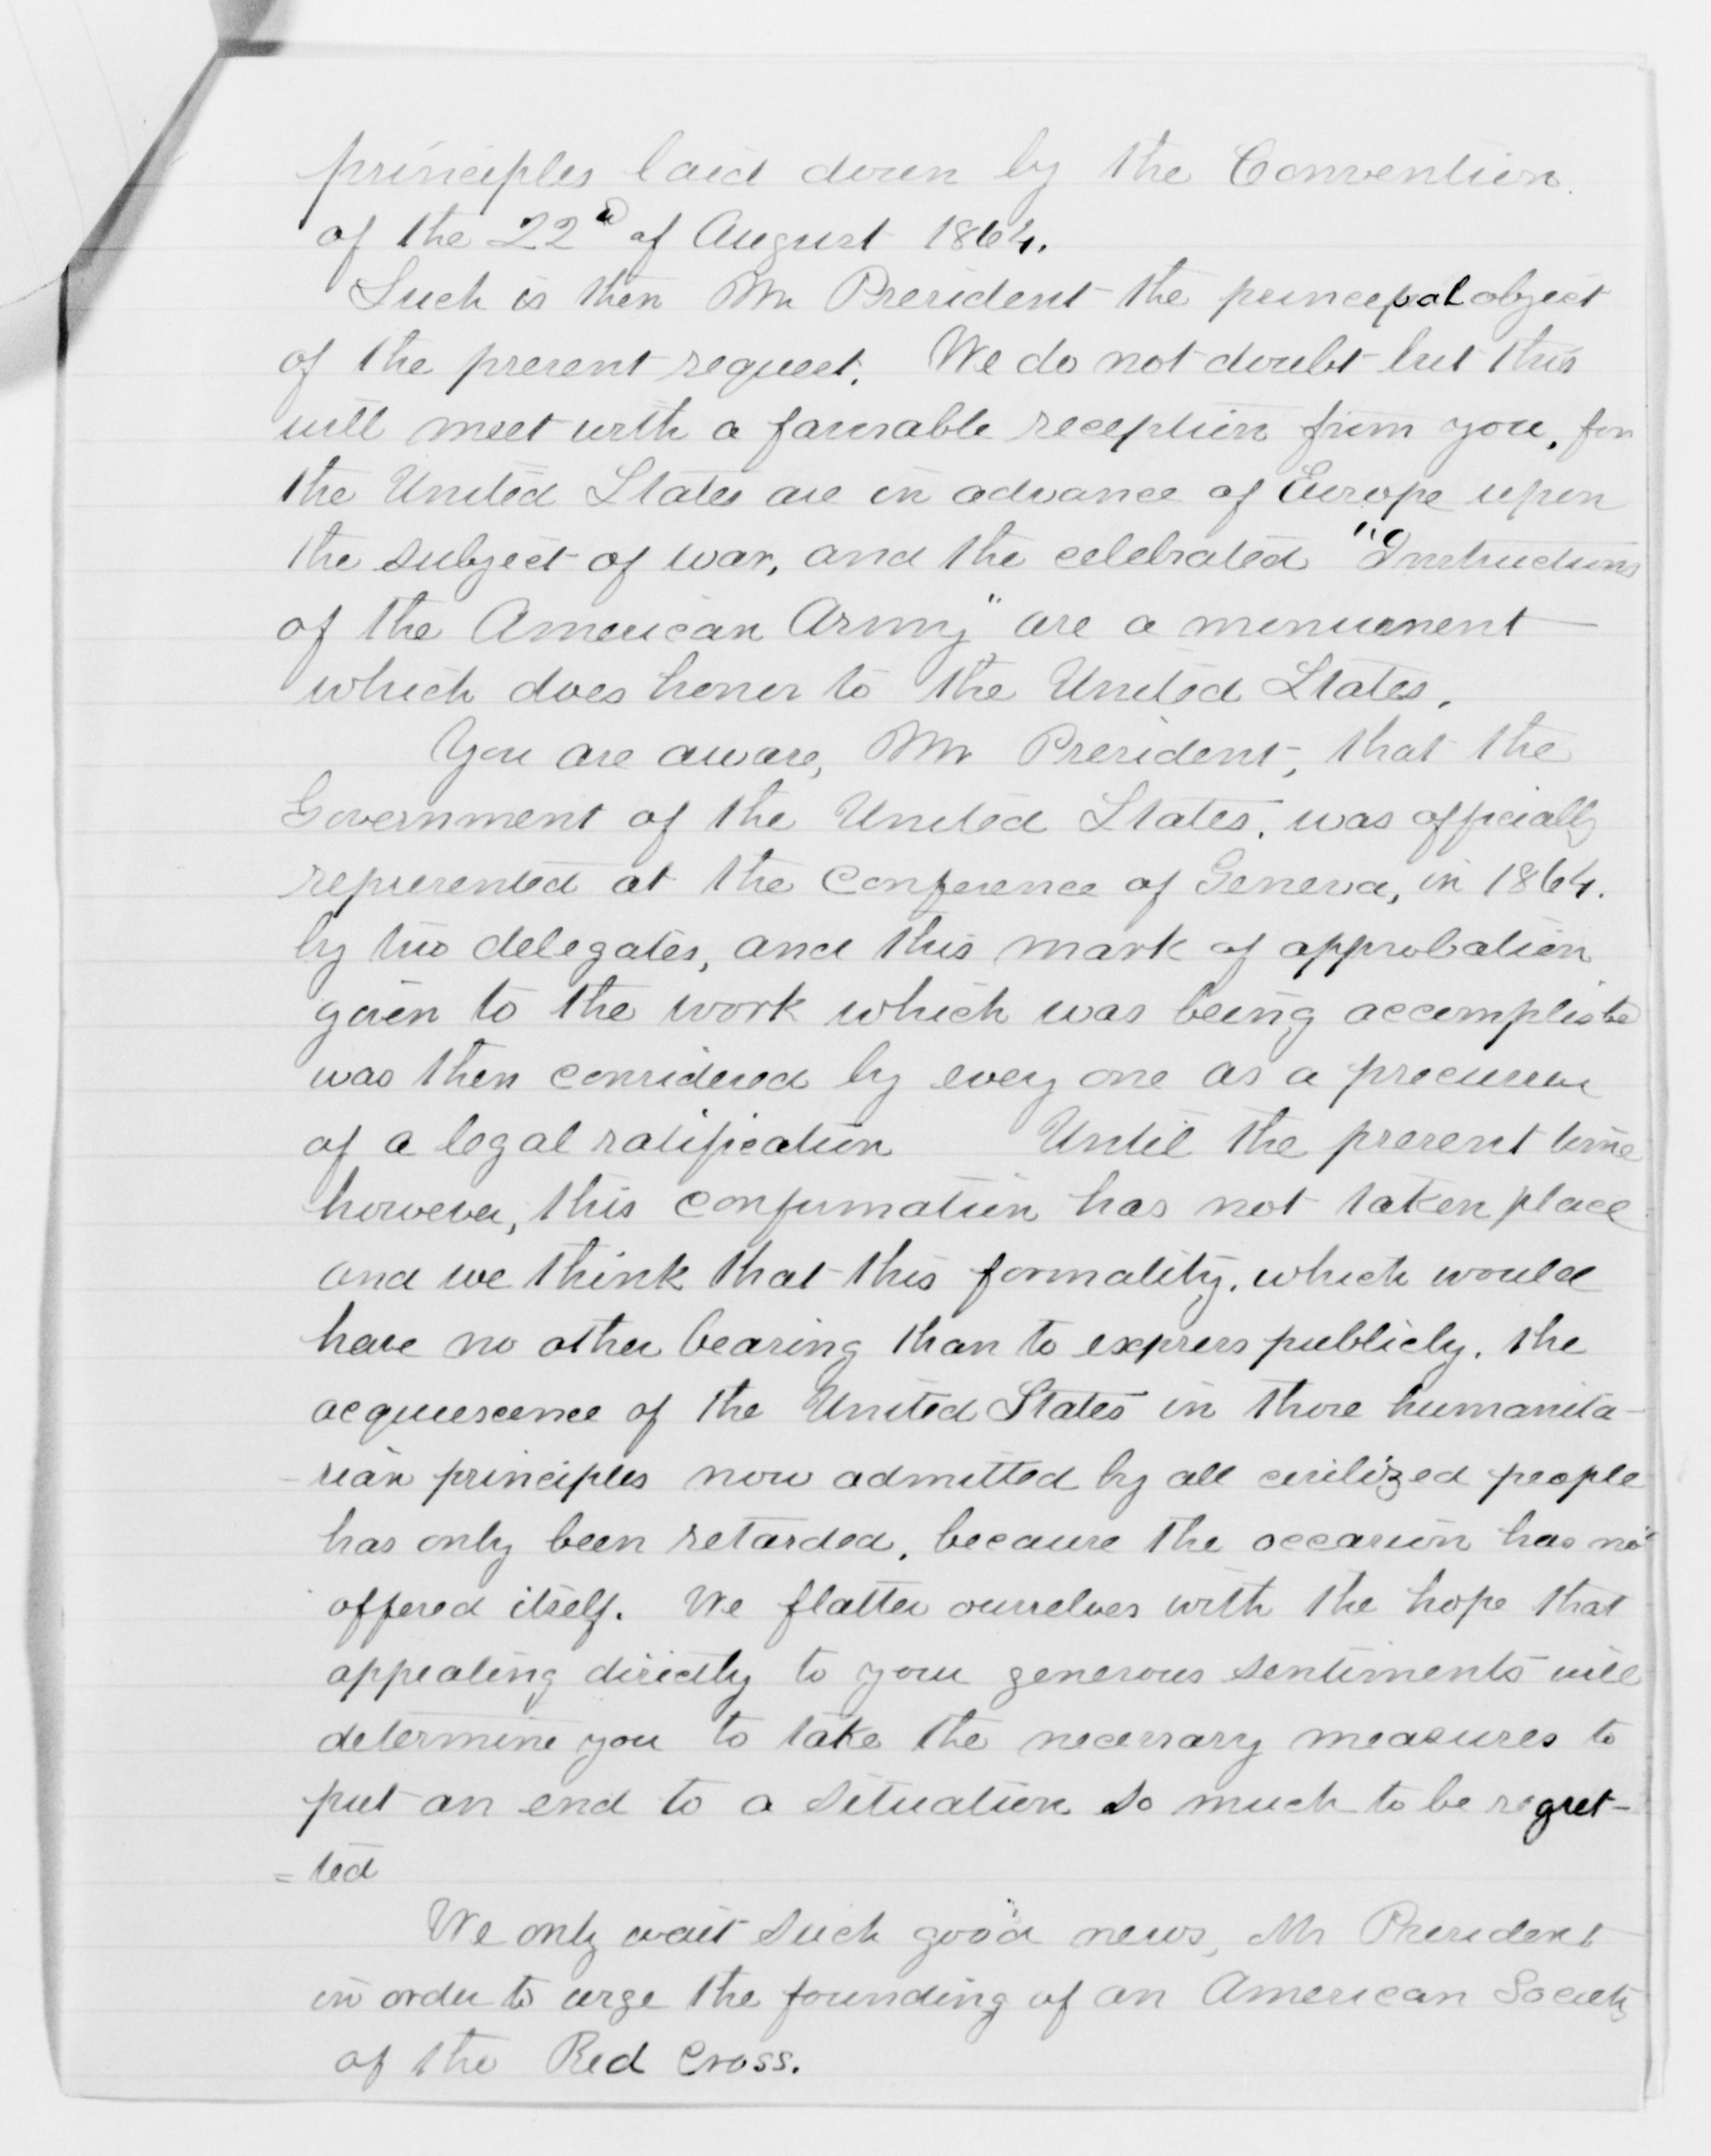 principles laid down by the Convention
of the 22d of August 1864.
Such is then Mr President the principal object
of the present request. We do not doubt but this
will meet with a favorable reception from you, for
the United States are in advance of Europe upon
the subject of war, and the celebrated "Instructions
of the American Army" are a monument
which does honor to the United States.
You are aware, Mr President, that the
Government of the United States, was officially
represented at the Conference of Geneva, in 1864.
by two delegates, and this mark of approbation
given to the work which was being accomplished
was then considered by every one as a precursor
of a legal ratification Until the present time
however, this confirmation has not taken place
and we think that this formality, which would
have no other bearing than to express publicly, the
acquiescence of the United States in those humanita-
-rian principles now admitted by all civilized people
has only been retarded, because the occasion has not
offered itself. We flatter ourselves with the hope that
appealing directly to your generous sentiments will
determine you to take the necessary measures to
put an end to a situation so much to be regret-
=ted
We only wait such good news, Mr President
in order to urge the founding of an American Society
of the Red Cross.